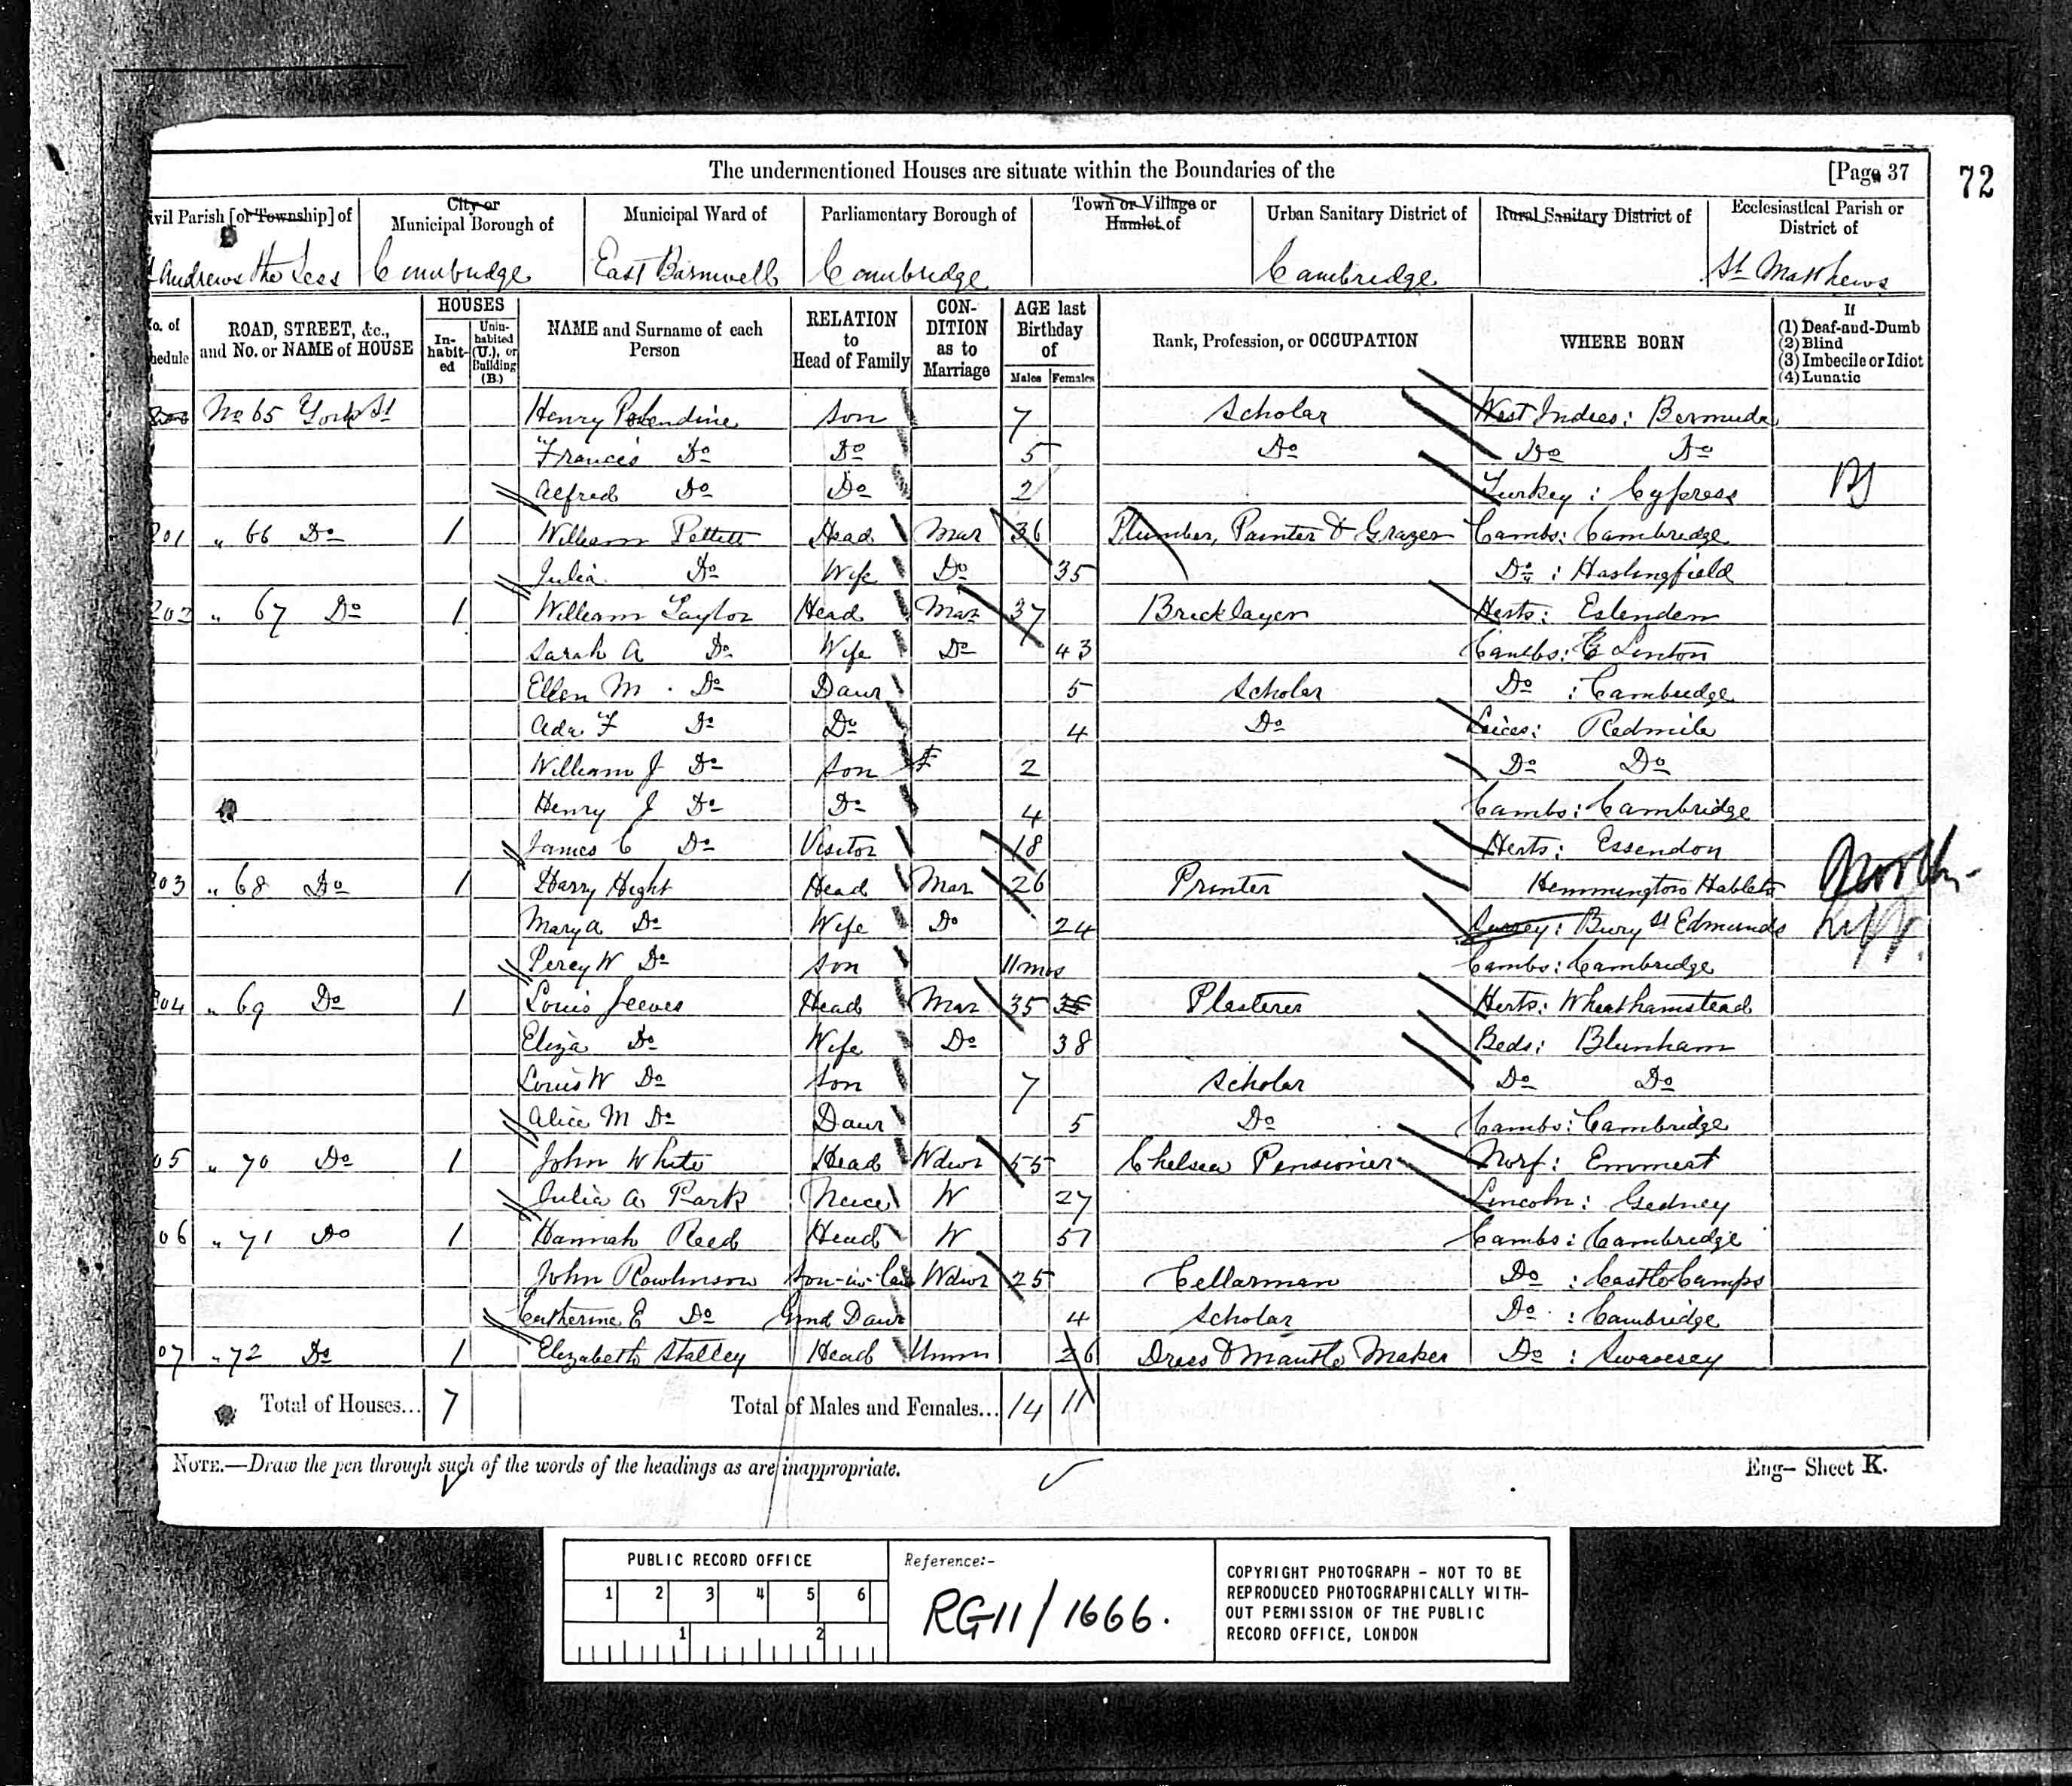 The undermentioned Houses are situate within the Boundaries of the [Page 37 72
ivil Parish [or Township] of | City or Municipal Borough of | Municipal Ward of | Parliamentary Borough of | Town or Village or Hamlet of | Urban Sanitary District of | Rural Sanitary District of | Ecclesiastical Parish or District of
t Andrews the Less | Cambridge | East Barnwell | Cambridge | Cambridge | St Matthews
o. of hedule | ROAD, STREET, &c., and No. or NAME of HOUSE | HOUSES In-habit-ed | Unin-habited (U.), or Building (B.) | NAME and Surname of each Person | RELATION to Head of Family | CON-DITION as to Marriage | AGE last Birthday of Males Females | Rank, Profession, or OCCUPATION | WHERE BORN | If (1) Deaf-and-Dumb (2) Blind (3) Imbecile or Idiot (4) Lunatic
No 65 York St Henry Polendine Son 7 Scholar West Indies: Bermuda
Francis Do Do 5 Do Do Do
Alfred Do Do 2 Turkey: Cypress
201 " 66 Do 1 William Pettett Head Mar 36 Plumber, Painter & Grazer Cambs: Cambridge
Julia Do Wife Do 35 Do: Haslingfield
202 " 67 Do 1 William Taylor Head Mar 37 Bricklayer Herts: Eslendem
Sarah A Do Wife Do 43 Cambs: Linton
Ellen M Do Daur 5 Scholar Do: Cambridge
Ada F Do Do 4 Do Leices: Redmile
William J Do Son 2 Do Do
Henry J Do Do 4 Cambs: Cambridge
James C Do Visitor 18 Herts: Essendon
203 " 68 Do 1 Harry Hight Head Mar 26 Printer Hemmington Hableto North-
Mary A Do Wife Do 24 Surrey: Bury St Edmunds
Percy W Do Son 11mos Cambs: Cambridge
204 " 69 Do 1 Louis Jeeves Head Mar 35 Plesterer Herts: Wheathamstead
Eliza Do Wife Do 38 Beds: Blunham
Louis W Do Son 7 Scholar Do Do
Alice M Do Daur 5 Do Cambs: Cambridge
05 " 70 Do 1 John White Head Wdwr 55 Chelsea Pensioner Norf: Emmeat
Julia A Park Neice W 27 Lincoln: Gedney
06 " 71 Do 1 Hannah Reed Head W 57 Cambs: Cambridge
John Rowlinson Son-in-law Wdwr 25 Cellarman Do: Castle Camps
Catherine E Do Grnd Daur 4 Scholar Do: Cambridge
07 " 72 Do 1 Elizabeth Stalley Head Unm 26 Dress & Mantle Maker Do: Swavesey
Total of Houses... 7 Total of Males and Females... 14 11
NOTE.—Draw the pen through such of the words of the headings as are inappropriate. Eng- Sheet K.
PUBLIC RECORD OFFICE
1 2 3 4 5 6
1 2
Reference:-
RG11/1666.
COPYRIGHT PHOTOGRAPH - NOT TO BE
REPRODUCED PHOTOGRAPHICALLY WITH-
OUT PERMISSION OF THE PUBLIC
RECORD OFFICE, LONDON